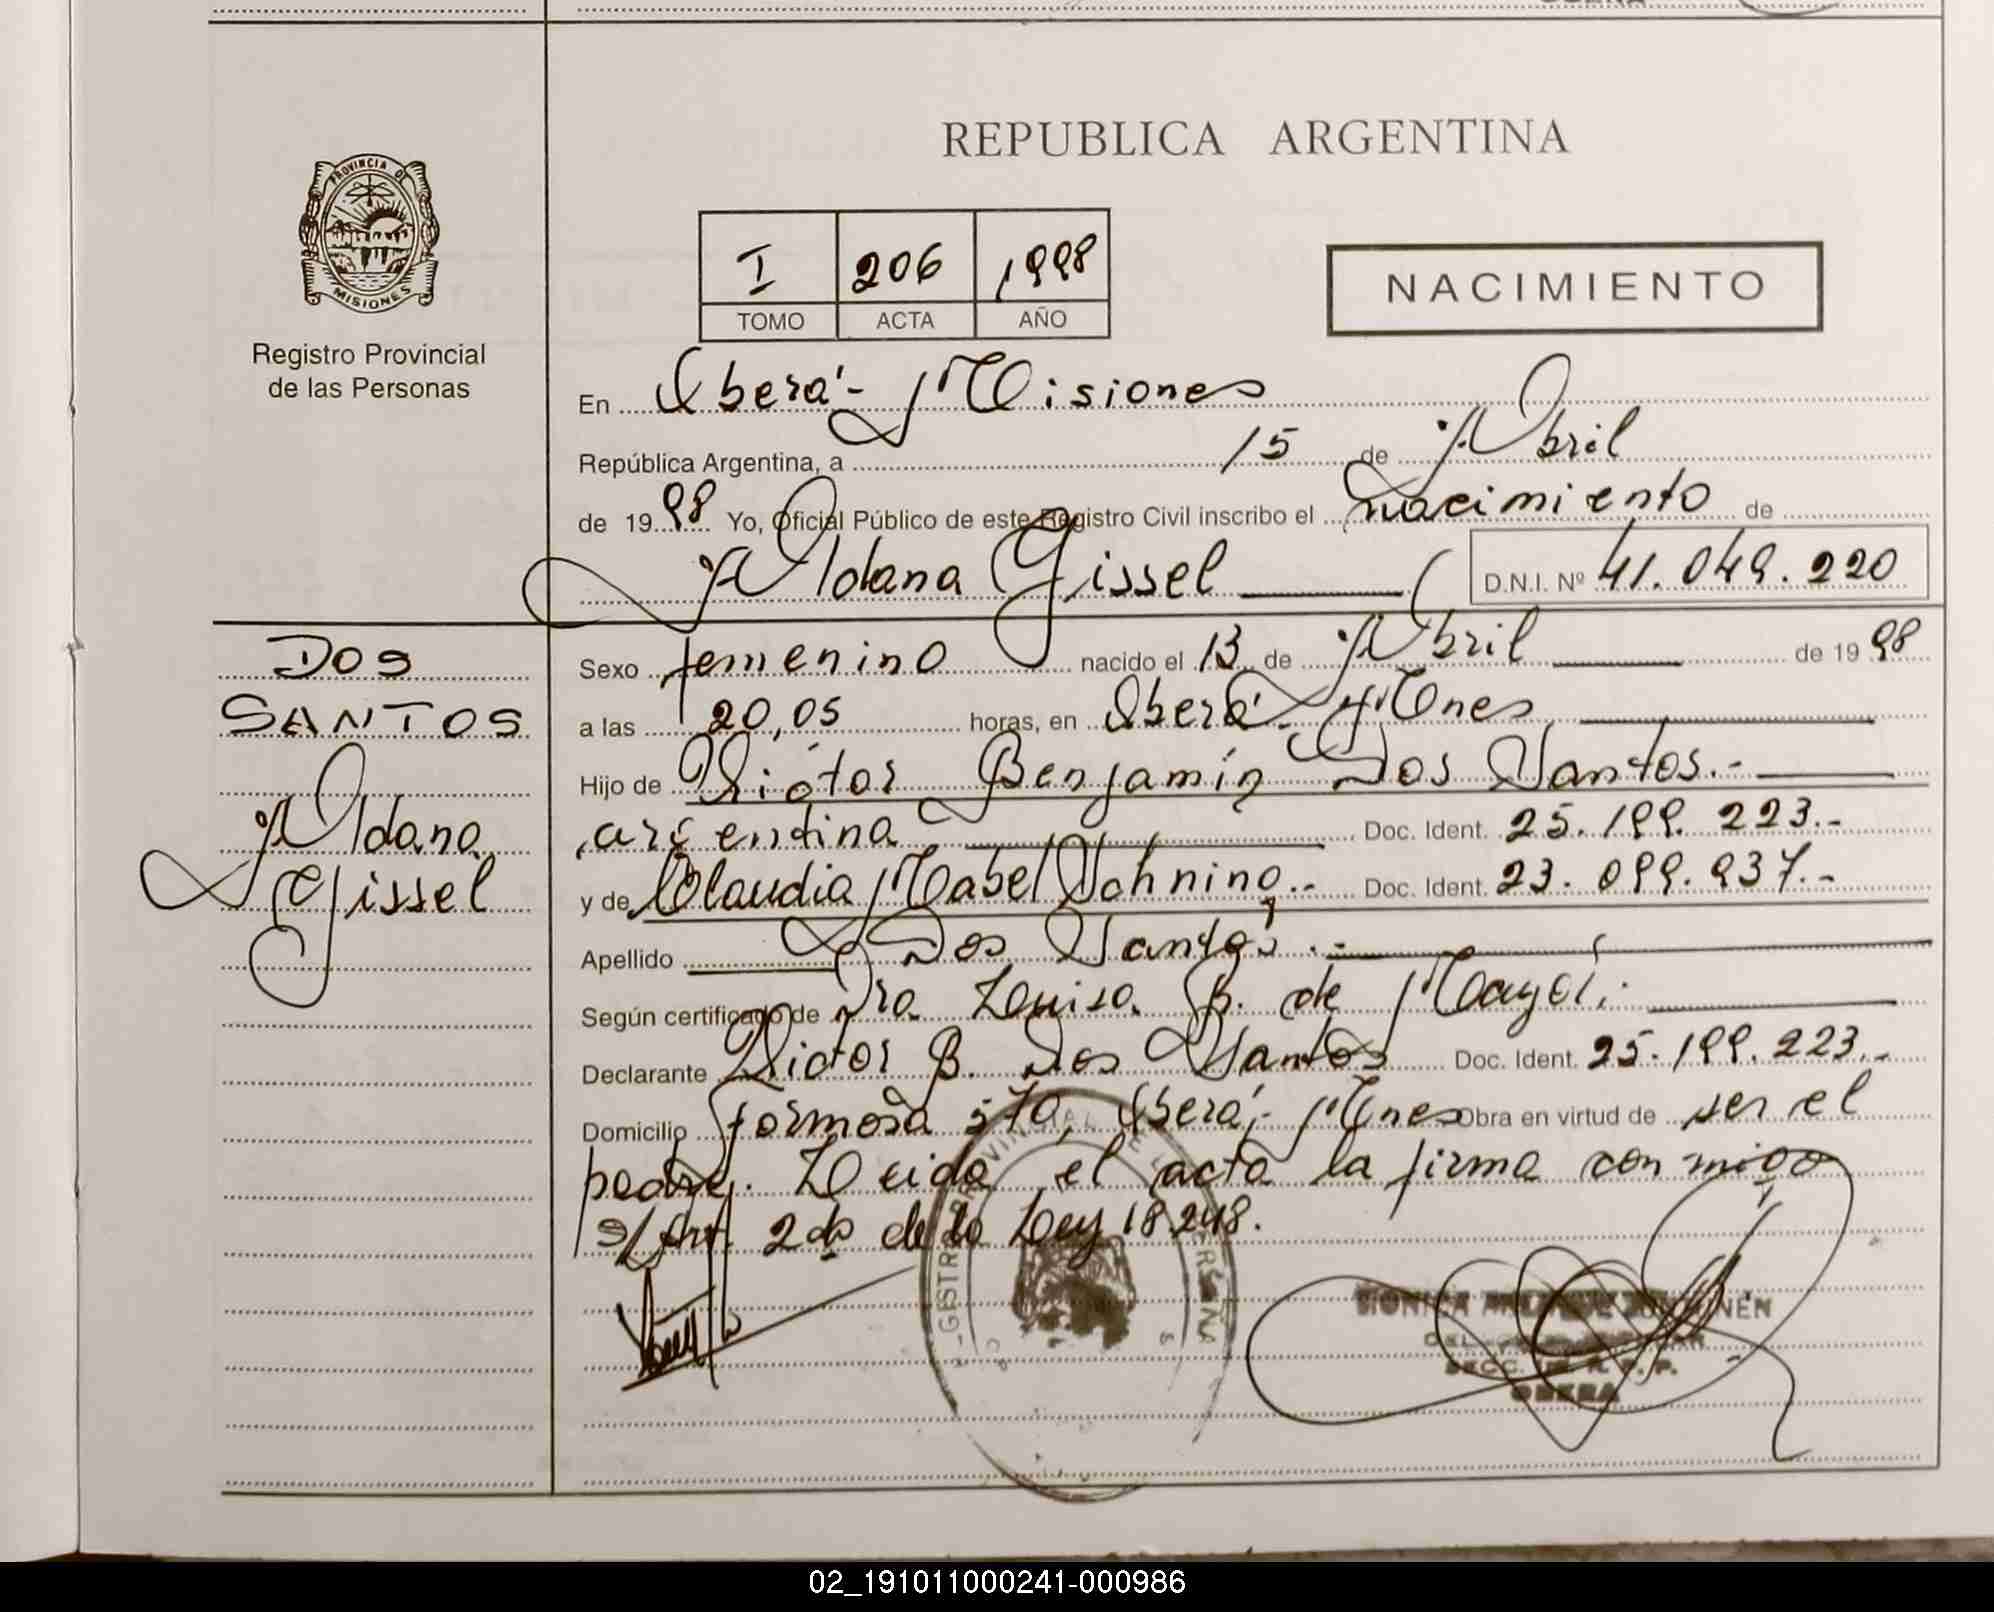 REPUBLICA ARGENTINA
PROVINCIA DE
MISIONES
Registro Provincial
de las Personas
I 206 1998
TOMO ACTA AÑO
NACIMIENTO
En Oberá - Misiones
República Argentina, a 15 de Abril
de 1998 Yo, Oficial Público de este Registro Civil inscribo el nacimiento de
Aldana Gissel D.N.I. Nº 41.049.220
DOS
SANTOS
Aldana
Gissel
Sexo femenino nacido el 13 de Abril de 1998
a las 20,05 horas, en Oberá - Mnes
Hijo de Victor Benjamín Dos Santos.-
argentina Doc. Ident. 25.199.223.-
y de Claudia Mabel Schnino.- Doc. Ident. 23.099.937.-
Apellido Dos Santos.-
Según certificado de Dra. Luisa B. de
Declarante Victor B. Dos Santos Doc. Ident. 25.199.223.-
Domicilio Formosa 570, Oberá, - Mnes Obra en virtud de ser el
padre. Leida el acta la firma conmigo
s/Art. 2do de la Ley 18248.
SECC. R. P. P.
OBERA
02_191011000241-000986